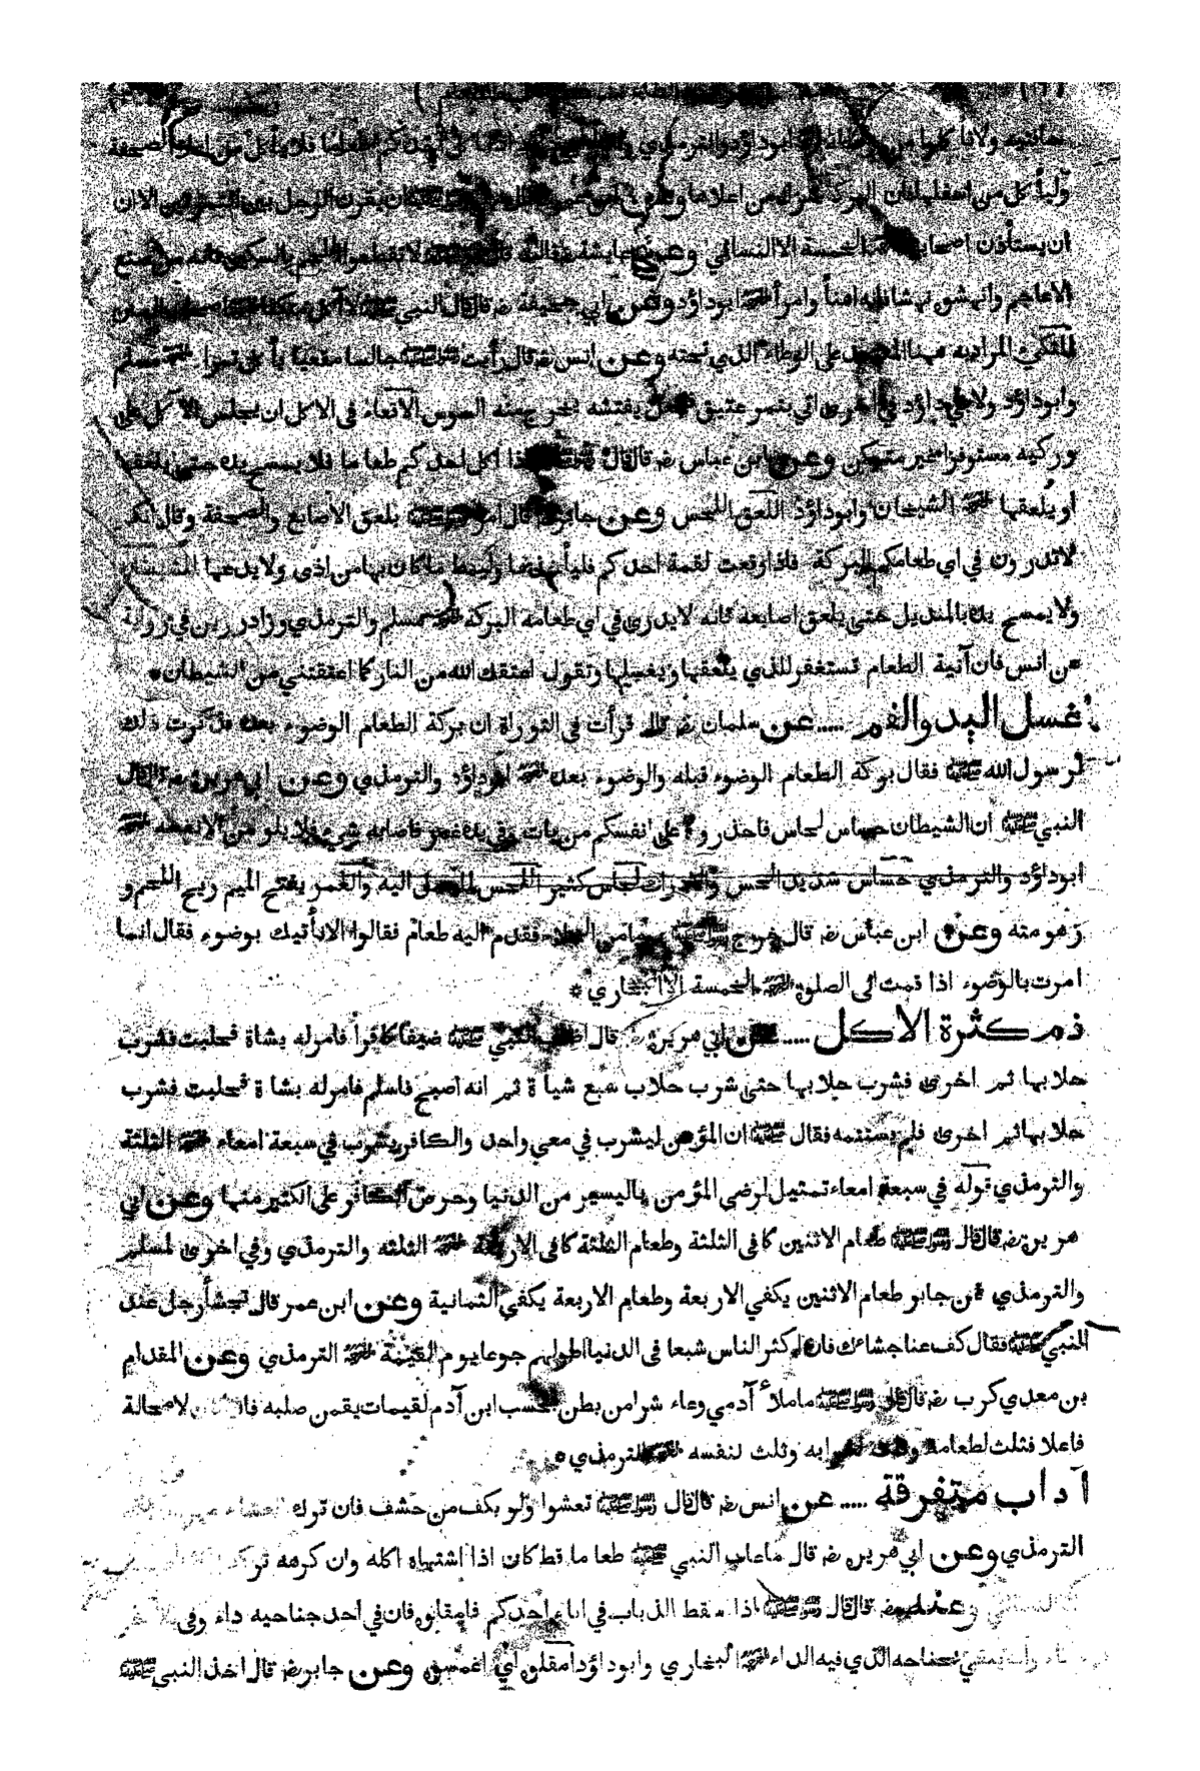 حافتيه ولا تأكلوا من وسطه ابوداؤد والترمذي احدكم طعاما فلا يأكل من اعلى الصحفة
وليأكل من اسفلها فان البركة تنزل من اعلاها وعن ابن عمر ان يقرن الرجل بين التمرتين الا ان
ان يستأذن اصحابه الخمسة الا النسائي وعن عايشة قالت لا تقطعوا اللحم بالسكين فانه من صنع
الاعاجم وانهشوه نهشا فانه اهنأ وامرأ ابوداؤد وعن ابي جحيفة رض قال قال النبي ﷺ لا آكل متكئا
المتكئ المراد به ههنا على الوطاء الذي تحته وعن انس رض قال رأيت ﷺ جالسا مقعيا يأكل تمرا مسلم
وابوداؤد ولابي داؤد في اخرى اتي بتمر عتيق فجعل يفتشه يخرج منه السوس الاقعاء في الاكل ان يجلس الآكل على
وركيه مستوفزا غير متمكن وعن ابن عباس رض قال قال ﷺ اذا اكل احدكم طعاما فلا يمسح يده حتى يلعقها
او يلعقها الشيخان وابوداؤد اللعق اللحس وعن جابر رض قال امر ﷺ بلعق الأصابع والصحفة وقال انكم
لا تدرون في اي طعامكم البركة فاذا وقعت لقمة احدكم فليأخذها وليمط ما كان بها من اذى ولا يدعها للشيطان
ولا يمسح يده بالمنديل حتى يلعق اصابعه فانه لا يدري في اي طعامه البركة مسلم والترمذي وزاد رزين في رواية
عن انس فان آنية الطعام تستغفر للذي يلعقها ويغسلها وتقول اعتقك الله من النار كما اعتقتني من الشيطان *
غسل اليد والفم ..... عن سلمان رض قال قرأت في التوراة ان بركة الطعام الوضوء بعده فذكرت ذلك
لرسول الله ﷺ فقال بركة الطعام الوضوء قبله والوضوء بعده ابوداؤد والترمذي وعن ابي هريرة رض قال قال
النبي ﷺ ان الشيطان حساس لحاس فاحذروه على انفسكم من بات وفي يده غمر فاصابه شيء فلا يلومن الا نفسه
ابوداؤد والترمذي حساس شديد الحس والادراك لحاس كثير اللحس لما يصل اليه والغمر بفتح الميم ريح اللحم و
زهومته وعن ابن عباس رض قال خرج ﷺ من الخلاء فقدم اليه طعام فقالوا الا نأتيك بوضوء فقال انما
امرت بالوضوء اذا قمت الى الصلوة الخمسة الا البخاري *
ذم كثرة الأكل ..... عن ابي هريرة رض قال اضاف النبي ﷺ ضيفا كافرا فامر له بشاة فحلبت فشرب
حلابها ثم اخرى فشرب حلابها حتى شرب حلاب سبع شياة ثم انه اصبح فاسلم فامر له بشاة فحلبت فشرب
حلابها ثم اخرى فلم يستتمه فقال ﷺ ان المؤمن ليشرب في معي واحد والكافر يشرب في سبعة امعاء الثلثة
والترمذي قوله في سبعة امعاء تمثيل لرضى المؤمن باليسير من الدنيا وحرص الكافر على الكثير منها وعن ابي
هريرة رض قال قال ﷺ طعام الاثنين كافى الثلثة وطعام الثلثة كافى الاربعة الثلثه والترمذي وفي اخرى لمسلم
والترمذي عن جابر طعام الاثنين يكفي الاربعة وطعام الاربعة يكفي الثمانية وعن ابن عمر قال تجشأ رجل عند
النبي ﷺ فقال كف عنا جشاءك فان اكثر الناس شبعا في الدنيا اطولهم جوعا يوم القيمة الترمذي وعن المقدام
بن معدي كرب رض قال قال ﷺ ما ملأ آدمي وعاء شرا من بطن بحسب ابن آدم لقيمات يقمن صلبه فان كان لا محالة
فاعلا فثلث لطعامه وثلث لشرابه وثلث لنفسه الترمذي *
آداب متفرقة ..... عن انس رض قال قال ﷺ تعشوا ولو بكف من حشف فان ترك العشاء
الترمذي وعن ابي هريرة رض قال ما عاب النبي ﷺ طعاما قط كان اذا اشتهاه اكله وان كرهه تركه
وعنه رض قال قال ﷺ اذا سقط الذباب في اناء احدكم فامقلوه فان في احد جناحيه داء وفي الآخر
وانه يتقي بجناحه الذي فيه الداء البخاري وابوداؤد امقلوه اي اغمسوه وعن جابر رض قال اخذ النبي ﷺ